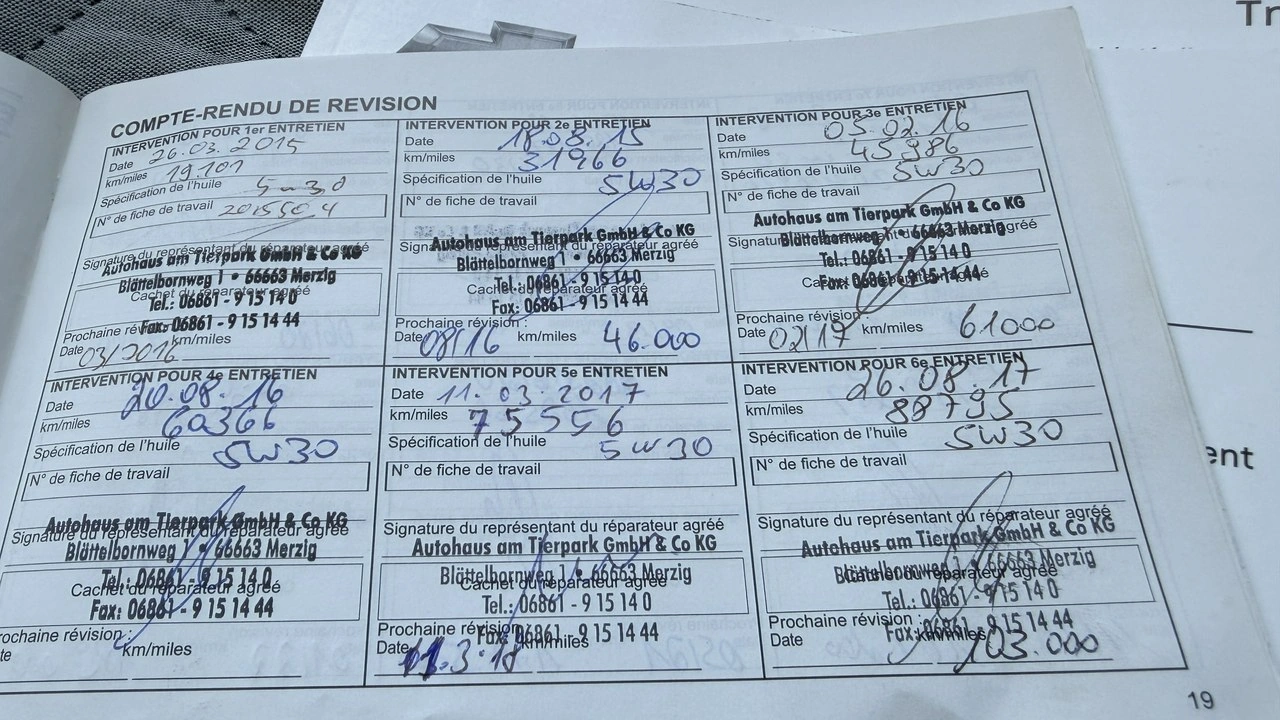 Tr
COMPTE-RENDU DE REVISION
INTERVENTION POUR 1er ENTRETIEN
Date 26.03.2015
km/miles 19.101
Spécification de l'huile 5w30
N° de fiche de travail
Signature du représentant du réparateur agréé
Autohaus am Tierpark GmbH & Co KG
Blättelbornweg 1 • 66663 Merzig
Cachet du réparateur agréé
Tel.: 06861 - 9 15 14 0
Fax: 06861 - 9 15 14 44
Prochaine révision :
Date 03/2016 km/miles
INTERVENTION POUR 2e ENTRETIEN
Date 18.08.15
km/miles 31966
Spécification de l'huile 5W30
N° de fiche de travail
Autohaus am Tierpark GmbH & Co KG
Signature du représentant du réparateur agréé
Blättelbornweg 1 • 66663 Merzig
Tel.: 06861 - 9 15 14 0
Cachet du réparateur agréé
Fax: 06861 - 9 15 14 44
Prochaine révision :
Date 08/16 km/miles 46.000
INTERVENTION POUR 3e ENTRETIEN
Date 05.02.16
km/miles 45986
Spécification de l'huile 5W30
N° de fiche de travail
Autohaus am Tierpark GmbH & Co KG
Signature du représentant du réparateur agréé
Blättelbornweg 1 • 66663 Merzig
Tel.: 06861 - 9 15 14 0
Cachet du réparateur agréé
Fax: 06861 - 9 15 14 44
Prochaine révision :
Date 02/17 km/miles 61000
INTERVENTION POUR 4e ENTRETIEN
Date 20.08.16
km/miles 60366
Spécification de l'huile 5W30
N° de fiche de travail
Autohaus am Tierpark GmbH & Co KG
Signature du représentant du réparateur agréé
Blättelbornweg 1 • 66663 Merzig
Tel.: 06861 - 9 15 14 0
Cachet du réparateur agréé
Fax: 06861 - 9 15 14 44
rochaine révision :
te km/miles
INTERVENTION POUR 5e ENTRETIEN
Date 11.03.2017
km/miles 75556
Spécification de l'huile 5W30
N° de fiche de travail
Signature du représentant du réparateur agréé
Autohaus am Tierpark GmbH & Co KG
Blättelbornweg 1 • 66663 Merzig
Cachet du réparateur agréé
Tel.: 06861 - 9 15 14 0
Prochaine révision :
Fax: 06861 - 9 15 14 44
Date 11.3.18 km/miles
INTERVENTION POUR 6e ENTRETIEN
Date 26.08.17
km/miles 88795
Spécification de l'huile 5W30
N° de fiche de travail
Signature du représentant du réparateur agréé
Autohaus am Tierpark GmbH & Co KG
Blättelbornweg 1 • 66663 Merzig
Cachet du réparateur agréé
Tel.: 06861 - 9 15 14 0
Prochaine révision :
Fax: 06861 - 9 15 14 44
Date km/miles 103.000
ent
19